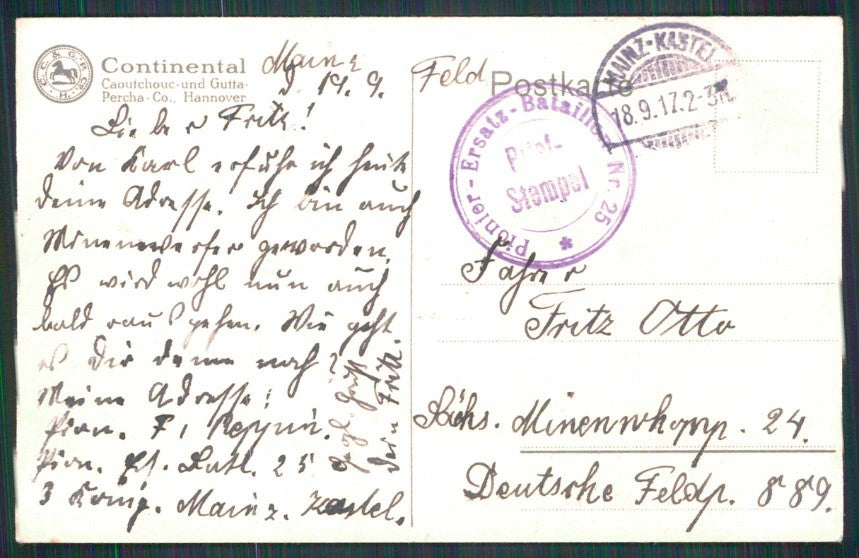 Continental
Caoutchouc- und Gutta-
Percha-Co., Hannover
Mainz
d 14. 9.
Lieber Fritz!
Von Karl erfuhr ich heute
deine Adresse. Ich bin auch
Minenwerfer geworden.
Es wird wohl nun auch
bald raus gehen. Wie geht
es Dir denn noch?
Meine Adresse:
Pion. F.
Pion. Ers. Batl. 25
3 Komp. Mainz. Kastel.
Dein Fritz.
Feld Postkarte
MAINZ-KASTEL
18.9.17.2-3N.
Pionier-Ersatz-Bataillon Nr. 25
Brief-
Stempel
Fahrer
Fritz Otto
Sächs. Minenwkomp. 24.
Deutsche Feldp. 889.